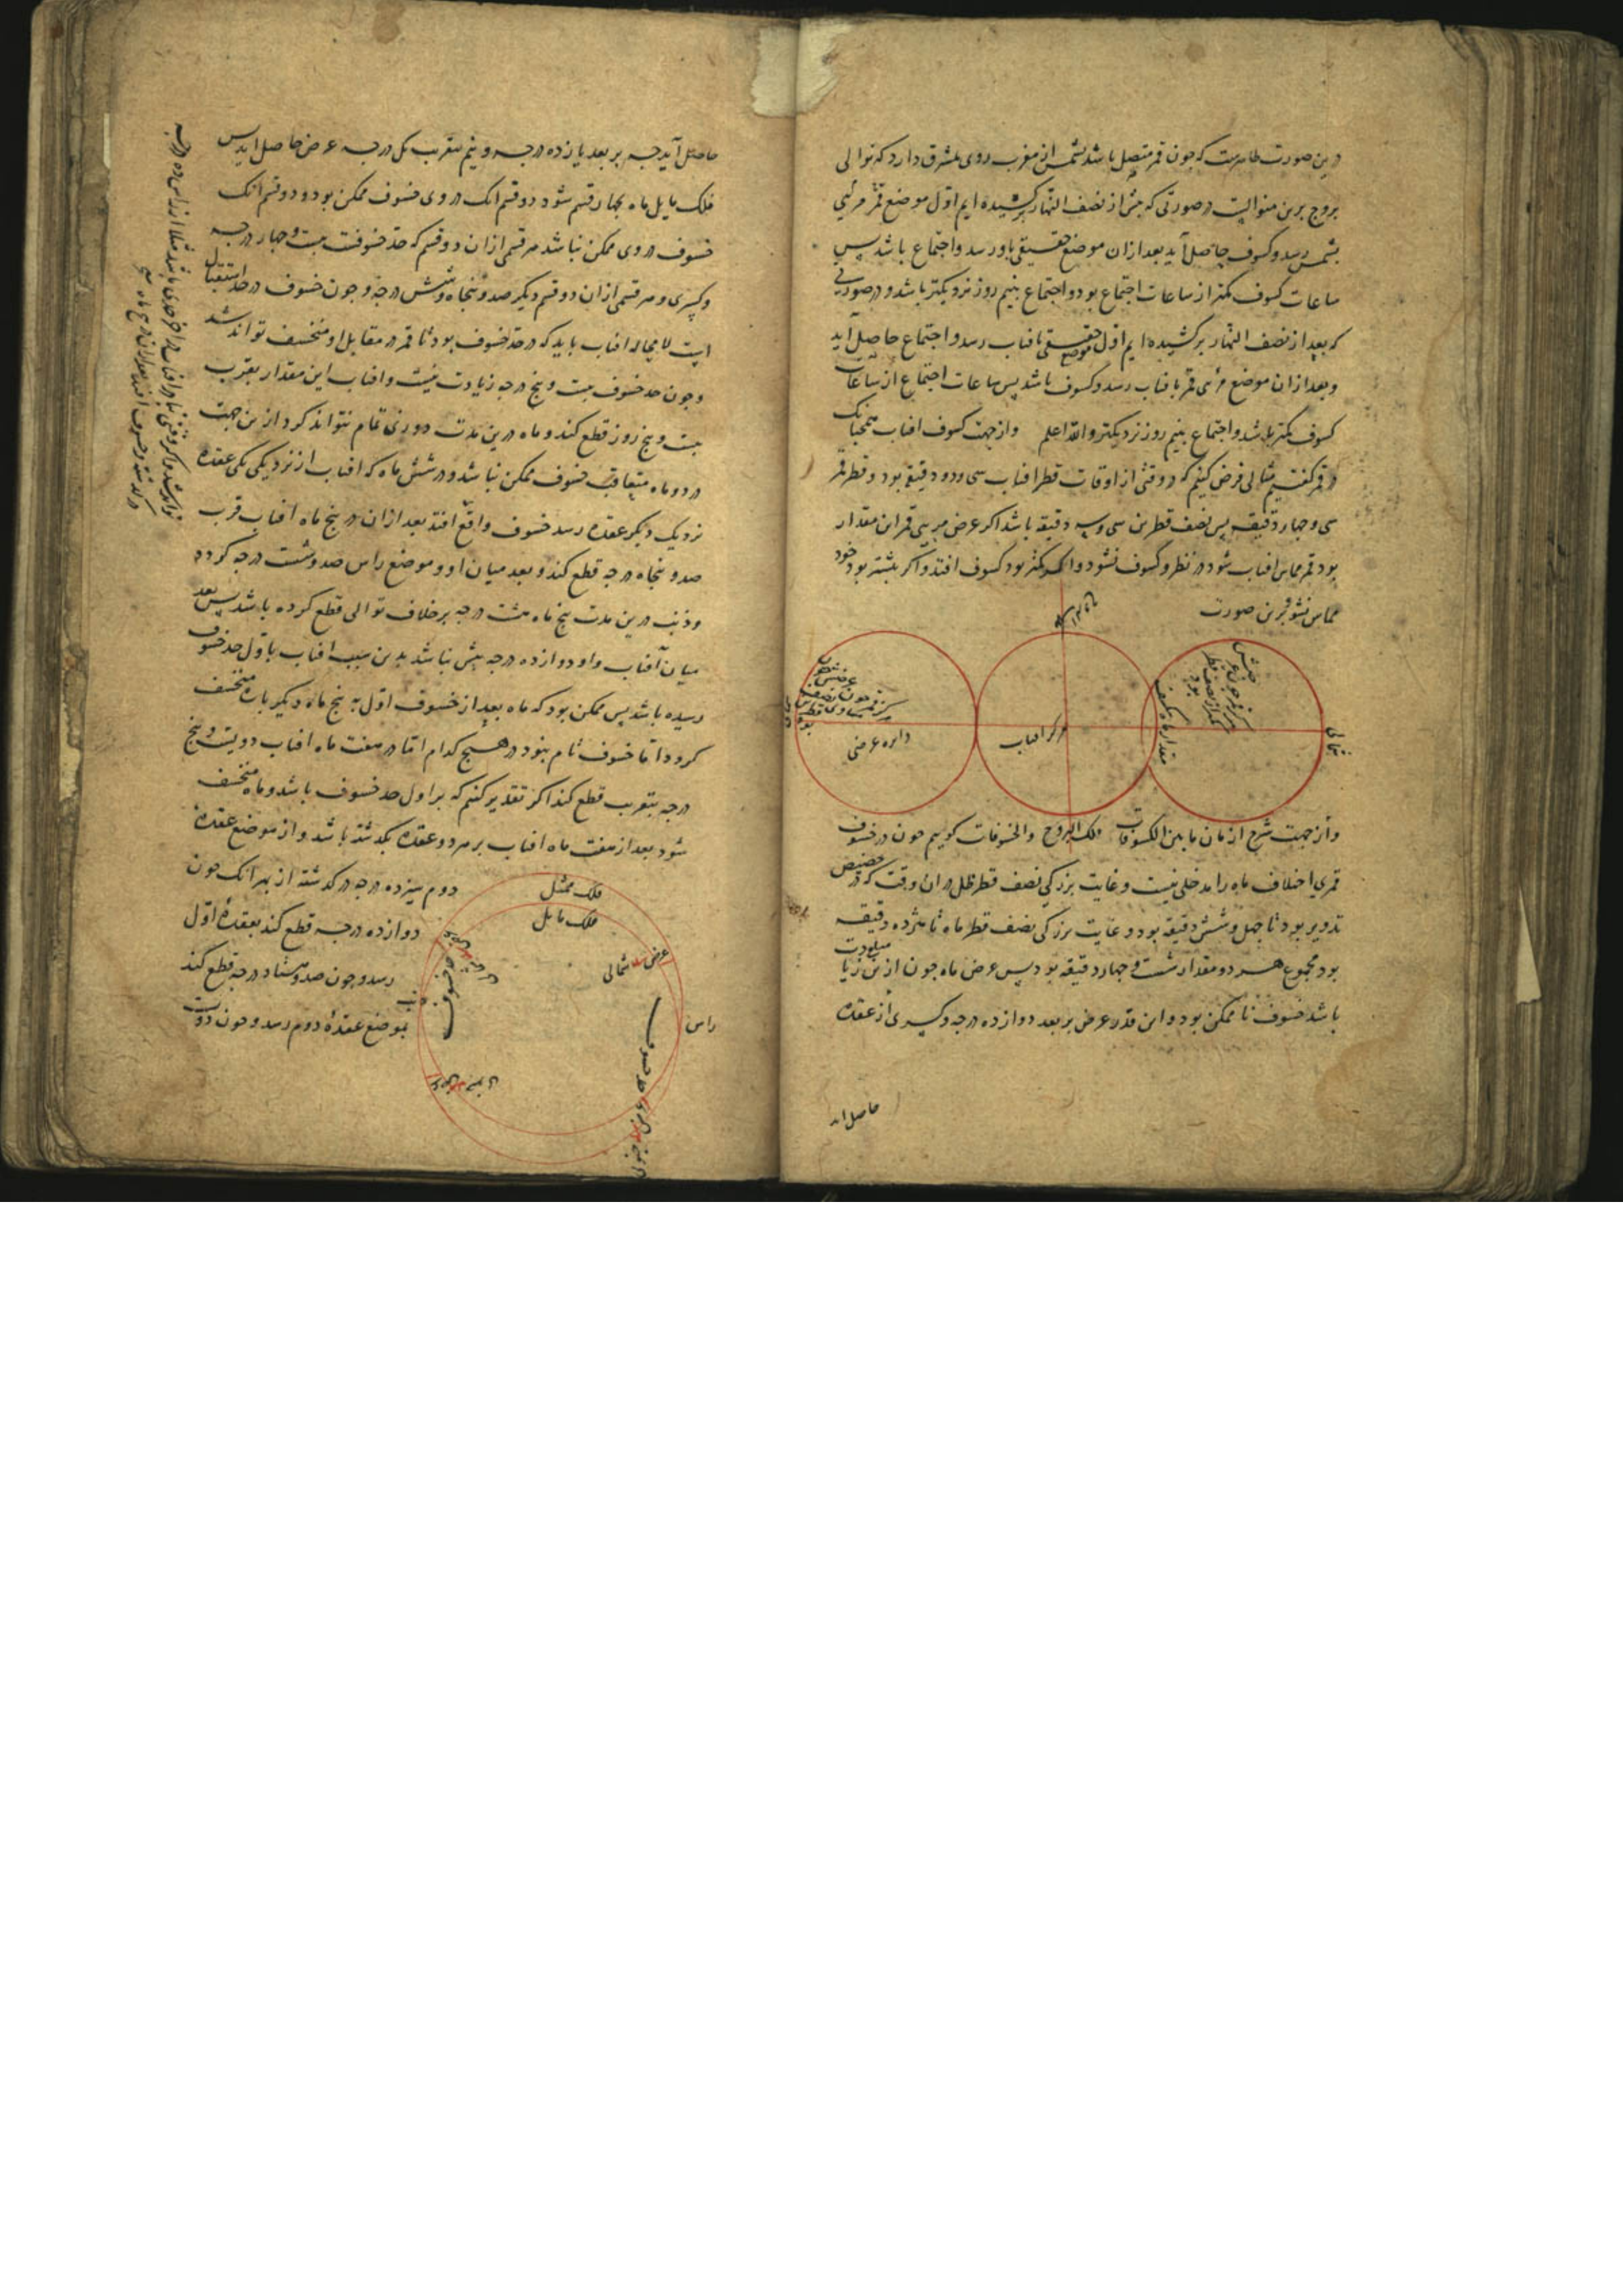 درین صورت ظاهرست که جون قمر متصل باشد بشمس از مغرب روی بمشرق دارد که توالی
بروج برین منوالست در صورتی که بیش از نصف النهار برکشیده ایم اول موضع قمر مرئی
بشمس رسد و کسوف حاصل آید بعد ازان موضع حقیقی باو رسد و اجتماع باشد پس
ساعات کسوف کمتر از ساعات اجتماع بود و اجتماع بنیم روز نزدیکتر باشد و در صورتی
که بعد از نصف النهار برکشیده ایم اول موضع حقیقی بافتاب رسد و اجتماع حاصل آید
و بعد ازان موضع مرئی قمر بافتاب رسد و کسوف باشد پس ساعات اجتماع از ساعات
کسوف کمتر باشد و اجتماع بنیم روز نزدیکتر والله اعلم و از جهت کسوف افتاب همجنانک
در قمر گفتیم مثالی فرض کنیم که در وقتی از اوقات قطر افتاب سی و دو دقیقه بود و قطر قمر
سی و جهار دقیقه پس نصف قطرین سی و سه دقیقه باشد اکر عرض مریی قمر این مقدار
بود قمر مماس افتاب شود در نظر و کسوف نشود و اکر کمتر بود کسوف افتد و اکر بیشتر بود خود
مماس نشود برین صورت
مرکز قمر جون عرضش
کمتر از نصف قطر
بود
شمالی
مقدار ما ینکسف
مرکز افتاب
دایره عرضی
مرکز قمر جون نصف
مساوی قطر
و از جهت شرح ازمان ما بین الکسوفات فلک البروج والخسوفات کوییم جون در خسوف
قمری اختلاف ماه را مدخلی نیست و غایت بزرکی نصف قطر ظل دران وقت که در حضیض
تدویر بود تا جهل و شش دقیقه بود و غایت بزرکی نصف قطر ماه تا هژده دقیقه
بود مجموع هر دو مقدار شصت و جهار دقیقه بود پس عرض ماه جون ازین زیادت
باشد خسوف نا ممکن بود و این قدر عرض بر بعد دوازده درجه و کسری از عقده
حاصل اید
حاصل آید جه بر بعد یازده درجه و نیم بتقریب یک درجه عرض حاصل اید پس
فلک مایل ماه بجهار قسم شود دو قسم انک در وی خسوف ممکن بود و دو قسم انک
خسوف در وی ممکن نباشد هر قسمی ازان دو قسم که حد خسوفست بیست و جهار درجه
و کسری و هر قسمی ازان دو قسم دیگر صد و پنجاه و شش درجه و جون خسوف در حد استقبال
است لا محاله افتاب باید که در حد خسوف بود تا قمر در مقابل او منخسف تواند شد
و جون حد خسوف بیست و پنج درجه زیادت نیست و افتاب این مقدار بتقریب
بیست و پنج روز قطع کند و ماه درین مدت دوری تمام نتواند کرد ازین جهت
در دو ماه متعاقب خسوف ممکن نباشد و در شش ماه که افتاب از نزدیکی یکی عقده
نزدیک دیکر عقده رسد خسوف واقع افتد بعد ازان در پنج ماه افتاب قرب
صد و پنجاه درجه قطع کند و بعد میان او و موضع راس صد و شصت درجه کردد
و ذنب درین مدت پنج ماه هشت درجه بر خلاف توالی قطع کرده باشد پس بعد
میان آفتاب و او دوازده درجه بیش نباشد بدین سبب افتاب باول حد خسوف
رسیده باشد پس ممکن بود که ماه بعد از خسوف اول به پنج ماه دیکر باره منخسف
کردد اما خسوف تام نبود در هیچ کدام اما در هفت ماه افتاب دویست و پنج
درجه بتقریب قطع کند اکر تقدیر کنیم که بر اول حد خسوف باشد و ماه منخسف
شود بعد از هفت ماه افتاب بر هر دو عقده بکدشته باشد و از موضع عقده
دوم سیزده درجه در کدشته از بهر انک جون
دوازده درجه قطع کند بعقده اول
رسد و جون صد و هشتاد درجه قطع کند
بموضع عقده دوم رسد و جون دویست
فلک ممثل
فلک مایل
عرض شمالی
راس
ذنب